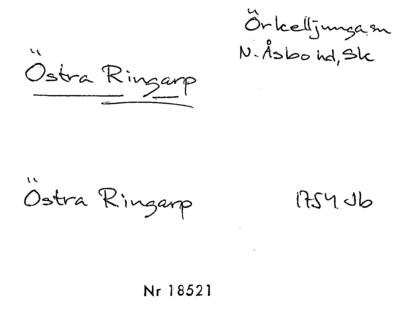 Örkelljunga sn
Östra Ringarp
N. Åsbo hd, Sk
Östra Ringarp
1754 Jb
Nr 18521